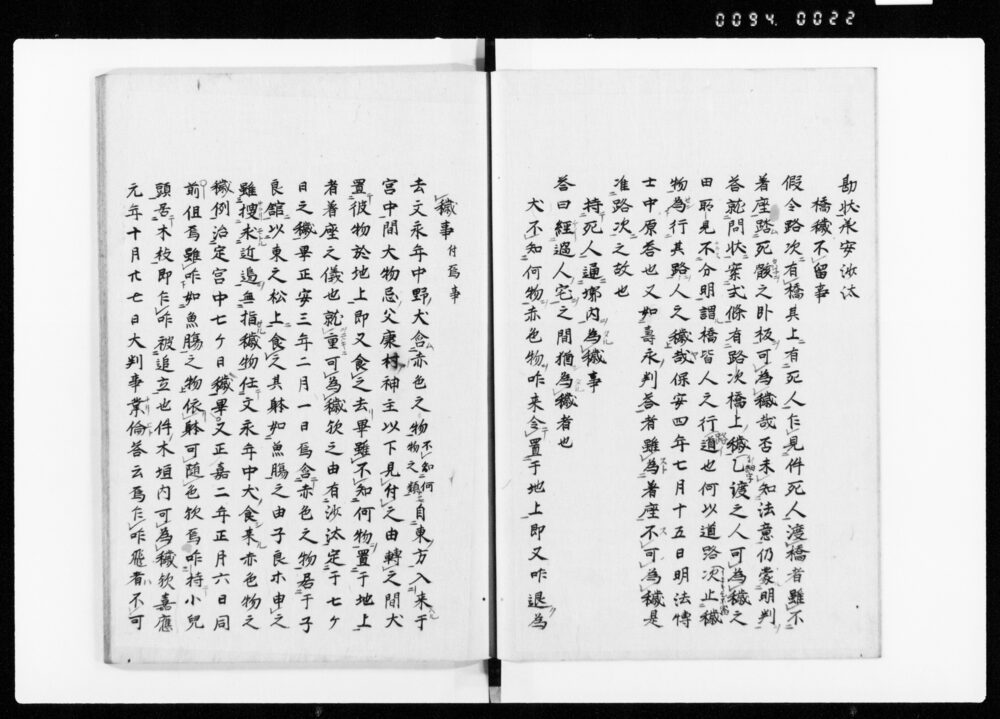 0094.0022
勘状永安沙汰
橋穢不留事
假令路次有橋其上有死人乍見件死人渡橋者雖不
着座踏死骸之卧板可為穢哉否未知法意仍蒙明判
答就問状案式條有路次橋上穢乙渡之人可為穢之
田耶見不分明謂橋皆人之行道也何以道路次止穢
物為行其路人之穢哉保安四年七月十五日明法博
士中原答也又如壽永判答者雖為着座不可為穢是
准路次之故也
持死人通墎内為穢事
答曰經過人宅之間猶為穢者也
犬不知何物赤色物咋来令置于地上即又咋退為
穢事 付鳥事
去文永年中野犬含赤色之物不知何物之類自東方入来于
宮中間大物忌父康村神主以下見付之由轉之間犬
置彼物於地上即又食之去畢雖不知何物置于地上
者着座之儀也就重可為穢欤之由有沙汰定于七ケ
日之穢畢正安三年二月一日鳥含赤色之物居于子
良館以東之松上食之其躰如魚膓之由子良木申之
雖搜求近邉無指穢物任文永年中犬食来赤色物之
穢例治定宮中七ケ日穢畢又正嘉二年正月六日同
前但鳥雖咋如魚膓之物依躰可随色欤鳥咋持小兒
頭居木枝即乍咋被追立也件木垣内可為穢欤嘉應
元年十月廿七日大判事業倫答云鳥乍咋飛者不可